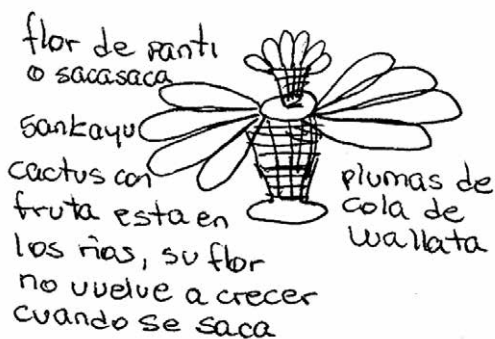 flor de panti
o sacasaca
sankayu
cactus con
fruta esta en
los rias, su flor
no vuelve a crecer
cuando se saca
plumas de
cola de
wallata